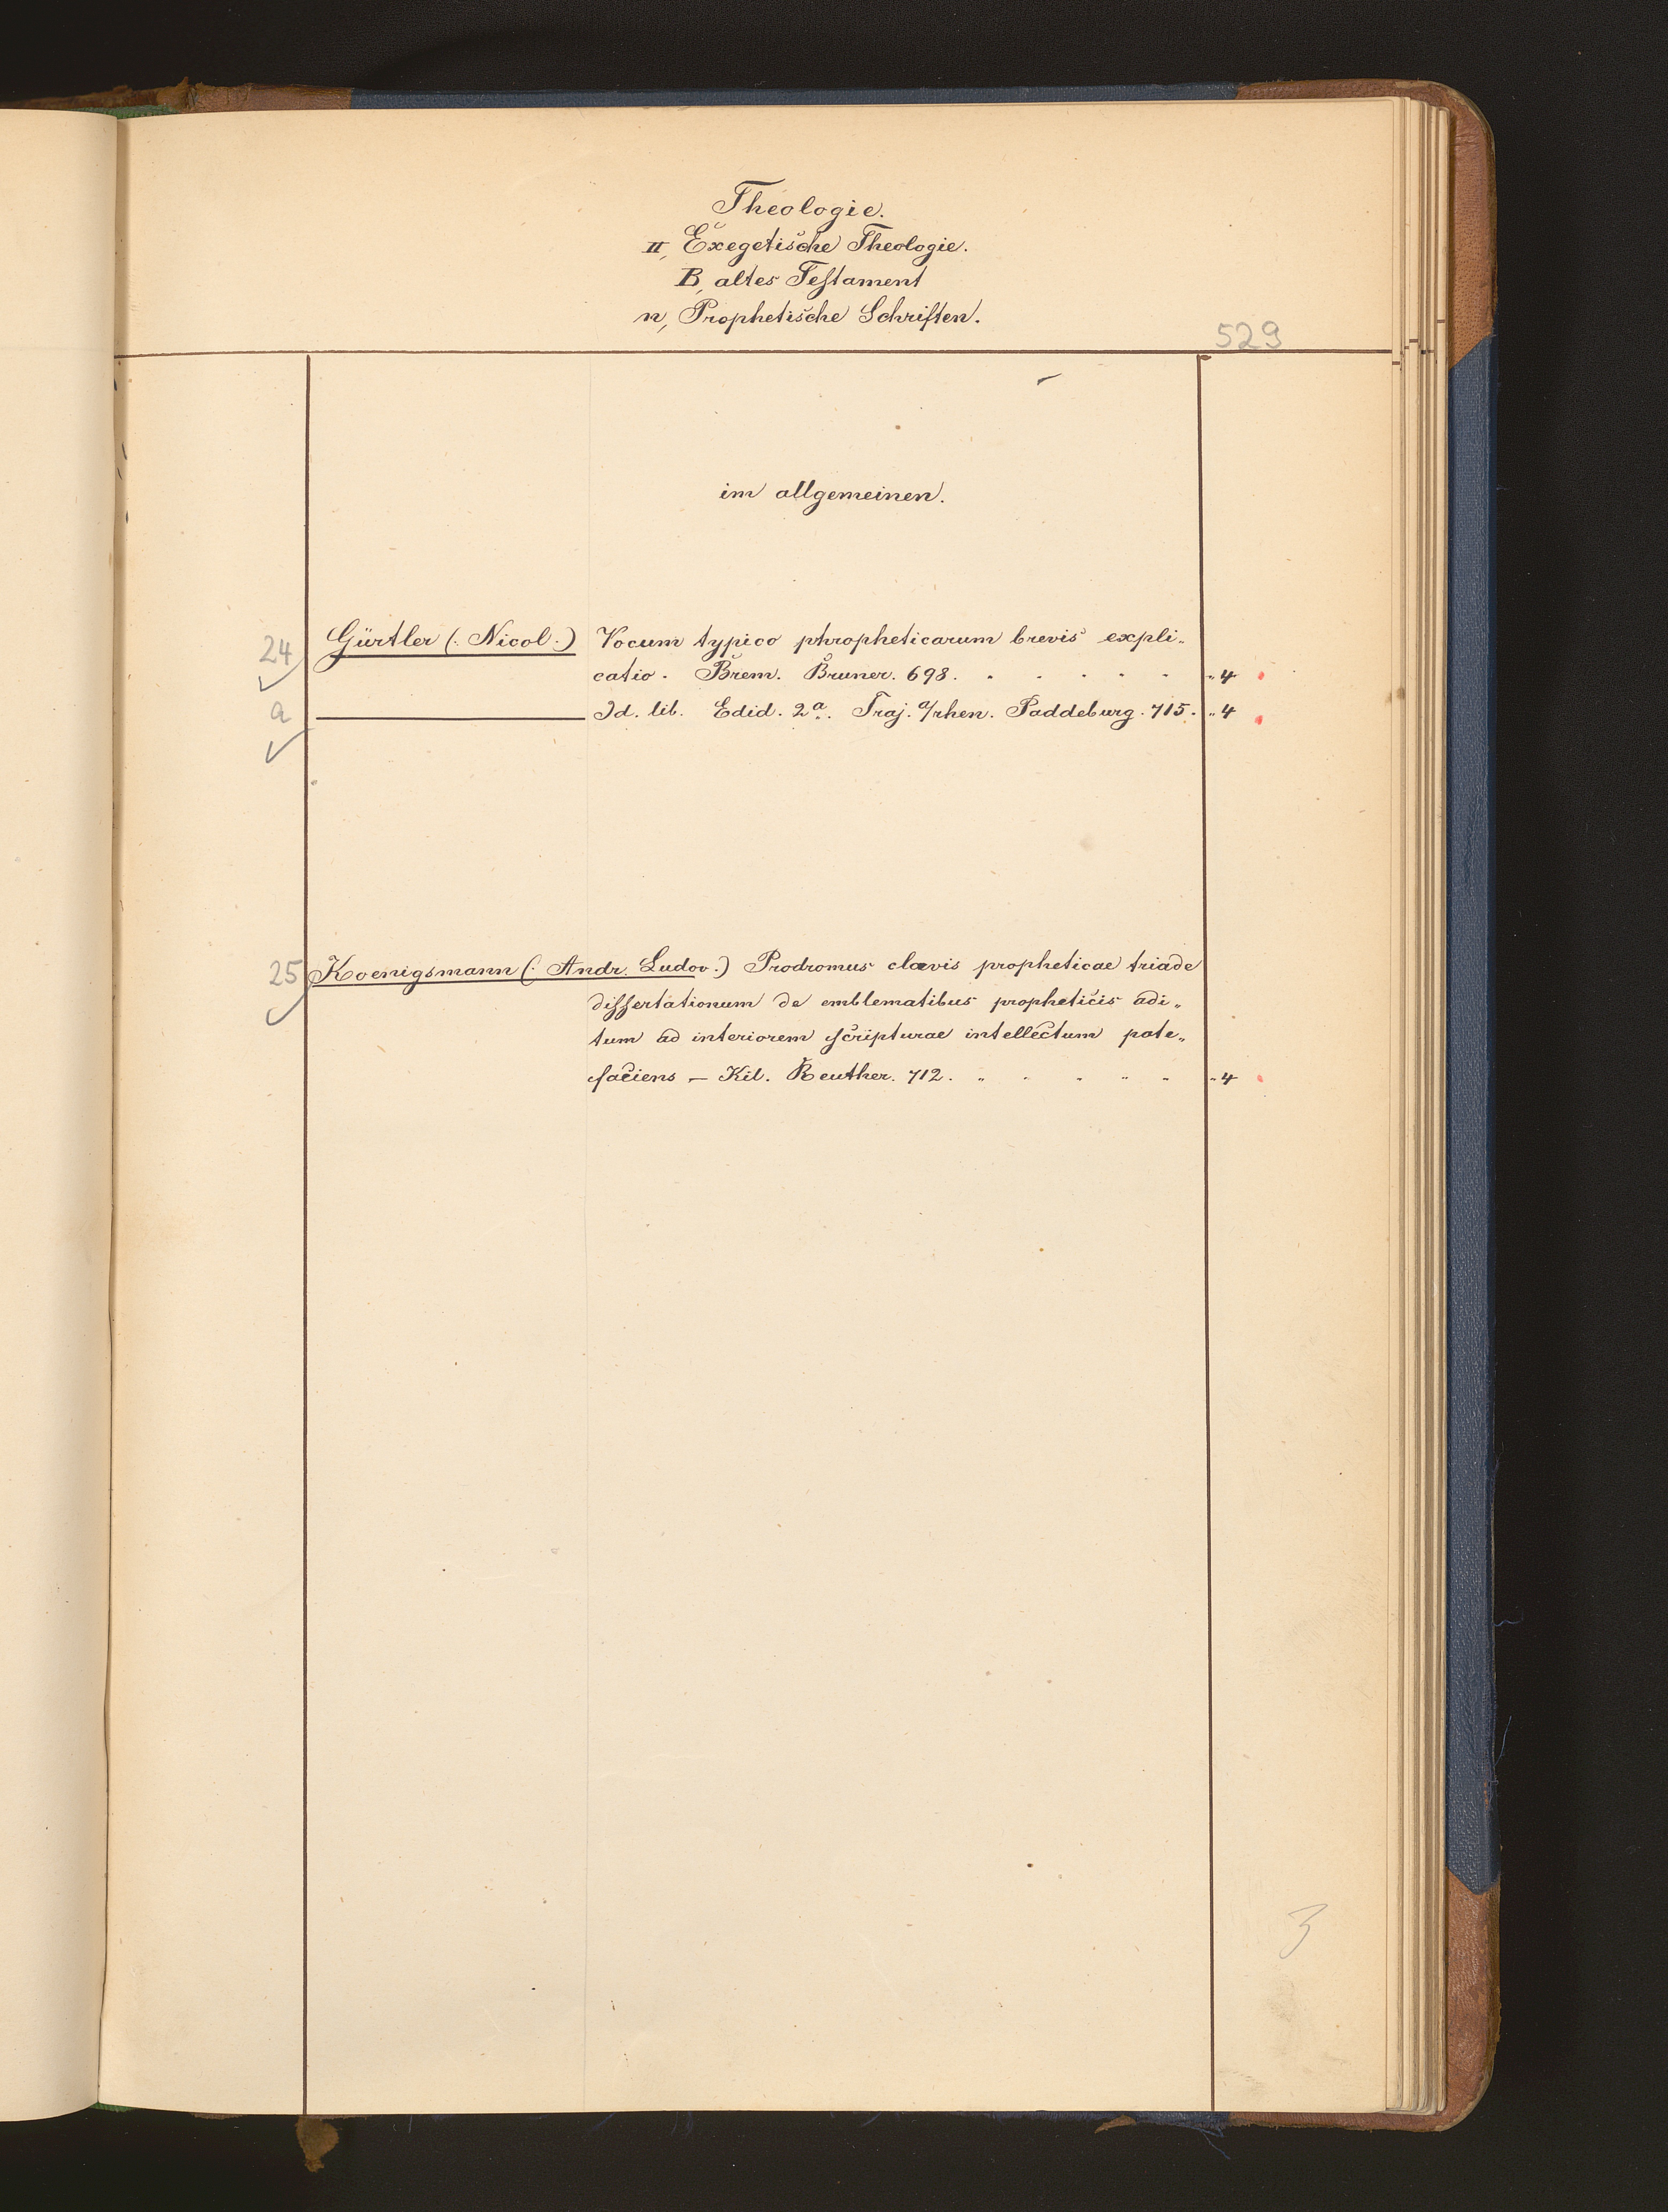 Theologie.
II, Exegetische Theologie.
B, altes Testament
n, Prophetische Schriften.
529
im allgemeinen.
24 Gürtler (: Nicol :) Vocum typico phropheticarum brevis expli„
catio. Brem. Bruner. 698. . . . . . „ 4
a Id. lib. Edid. 2a. Traj. a/rhen. Paddeburg. 715. „ 4
25 Koenigsmann (: Andr. Ludov :) Prodromus clavis propheticae triade
dissertationum de emblematibus propheticis adi„
tum ad interiorem scripturae intellectum pate„
faciens — Kil. Reuther. 712. „ . . „ . „ 4
3